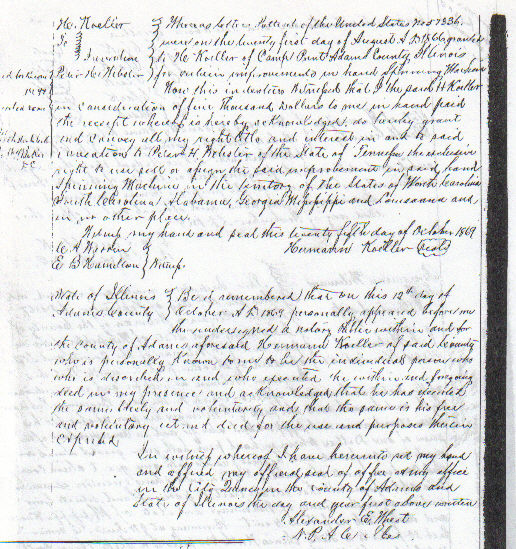 H. Koeller } Whereas letters Patent of the United States No 57336
To } were on the twenty first day of August A D 1866 granted
Invention } to H Koeller of Camp Point Adams County Illinois
Peter H. Webster } for certain improvements in hand Spinning Machine
Now this indenture Witnesseth that I the said H Koeller
in consideration of five Thousand dollars to me in hand paid
the receipt whereof is hereby acknowledged, do hereby grant
and convey all my right title and interest in and to said
invention to Peter H. Webster of the State of the exclusive
right to use sell or assign the said improvement in said hand
Spinning Machine in the territory of the States of North Carolina
South Carolina Alabama, Georgia Mississippi and Louisiana and
in no other place.
Witness my hand and seal this twenty fifth day of October 1869
Hermann Koeller (seal)
E B Hamilton } Witness
State of Illinois } Be it remembered that on this 12th day of
Adams County } October A D 1869 personally appeared before me
the undersigned a notary Public within and for
the County of Adams aforesaid Hermann Koeller of said County
who is personally known to me to be the individual person who
who is described in and who executed the within and foregoing
deed in my presence and acknowledged that he has executed
the same freely and voluntarily and that the same is his free
and voluntary act and deed for the use and purposes therein
expressed
In witness whereof I have hereunto set my hand
and affixed my official seal of office at my office
in the City Quincy in the County of Adams and
State of Illinois the day and year first above written
Alexander E. Wheat
N. P. A. Co Ills